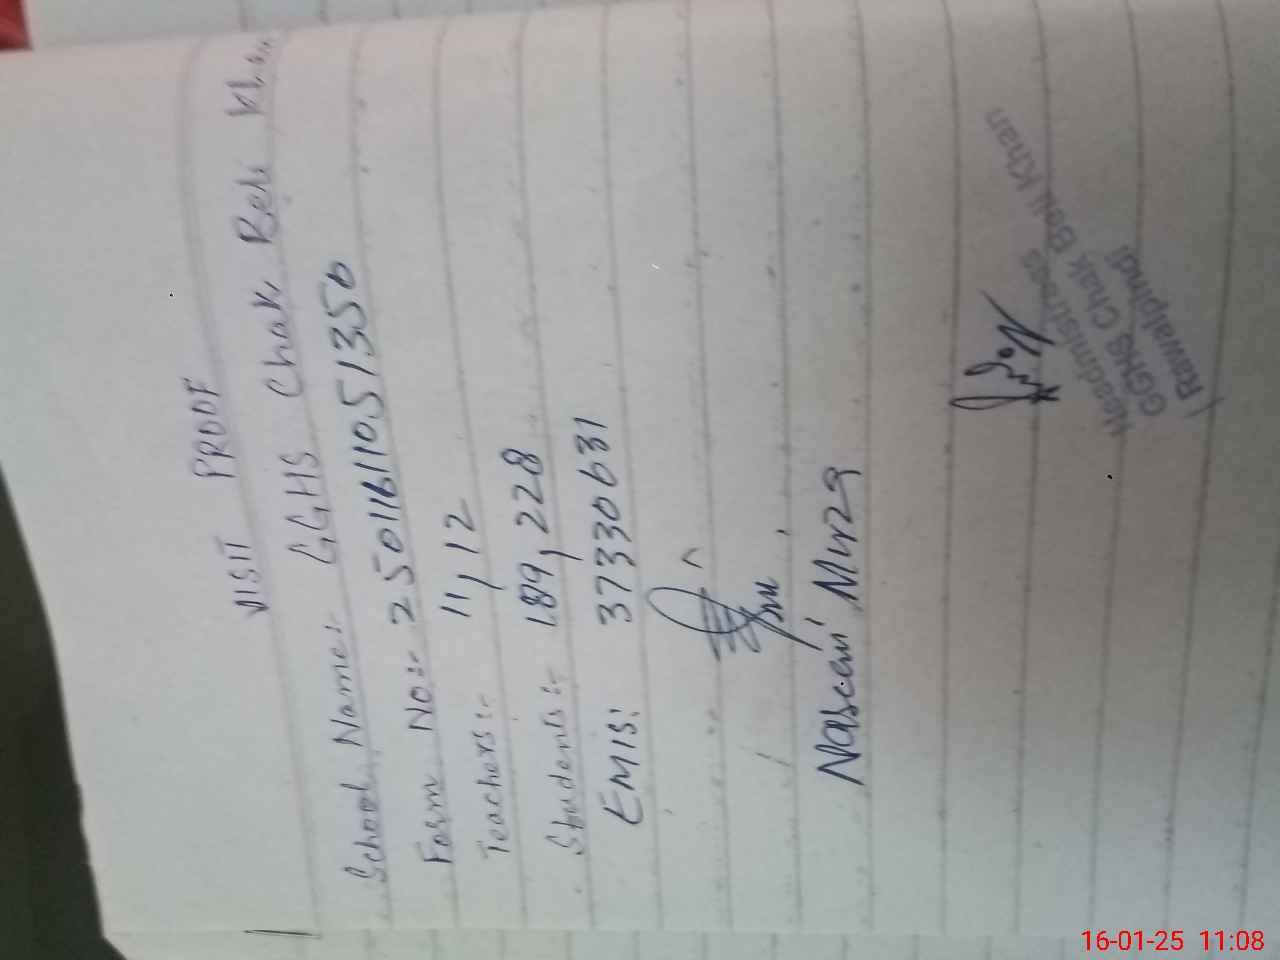 VISIT PROOF
School Name:- GGHS Chak Beli Khan
Form No:- 25011611051350
Teachers:- 11, 12
Students:- 189, 228
EMIS: 37330631
Naseem Mirza
Headmistress
GGHS Chak Beli Khan
Rawalpindi
16-01-25 11:08